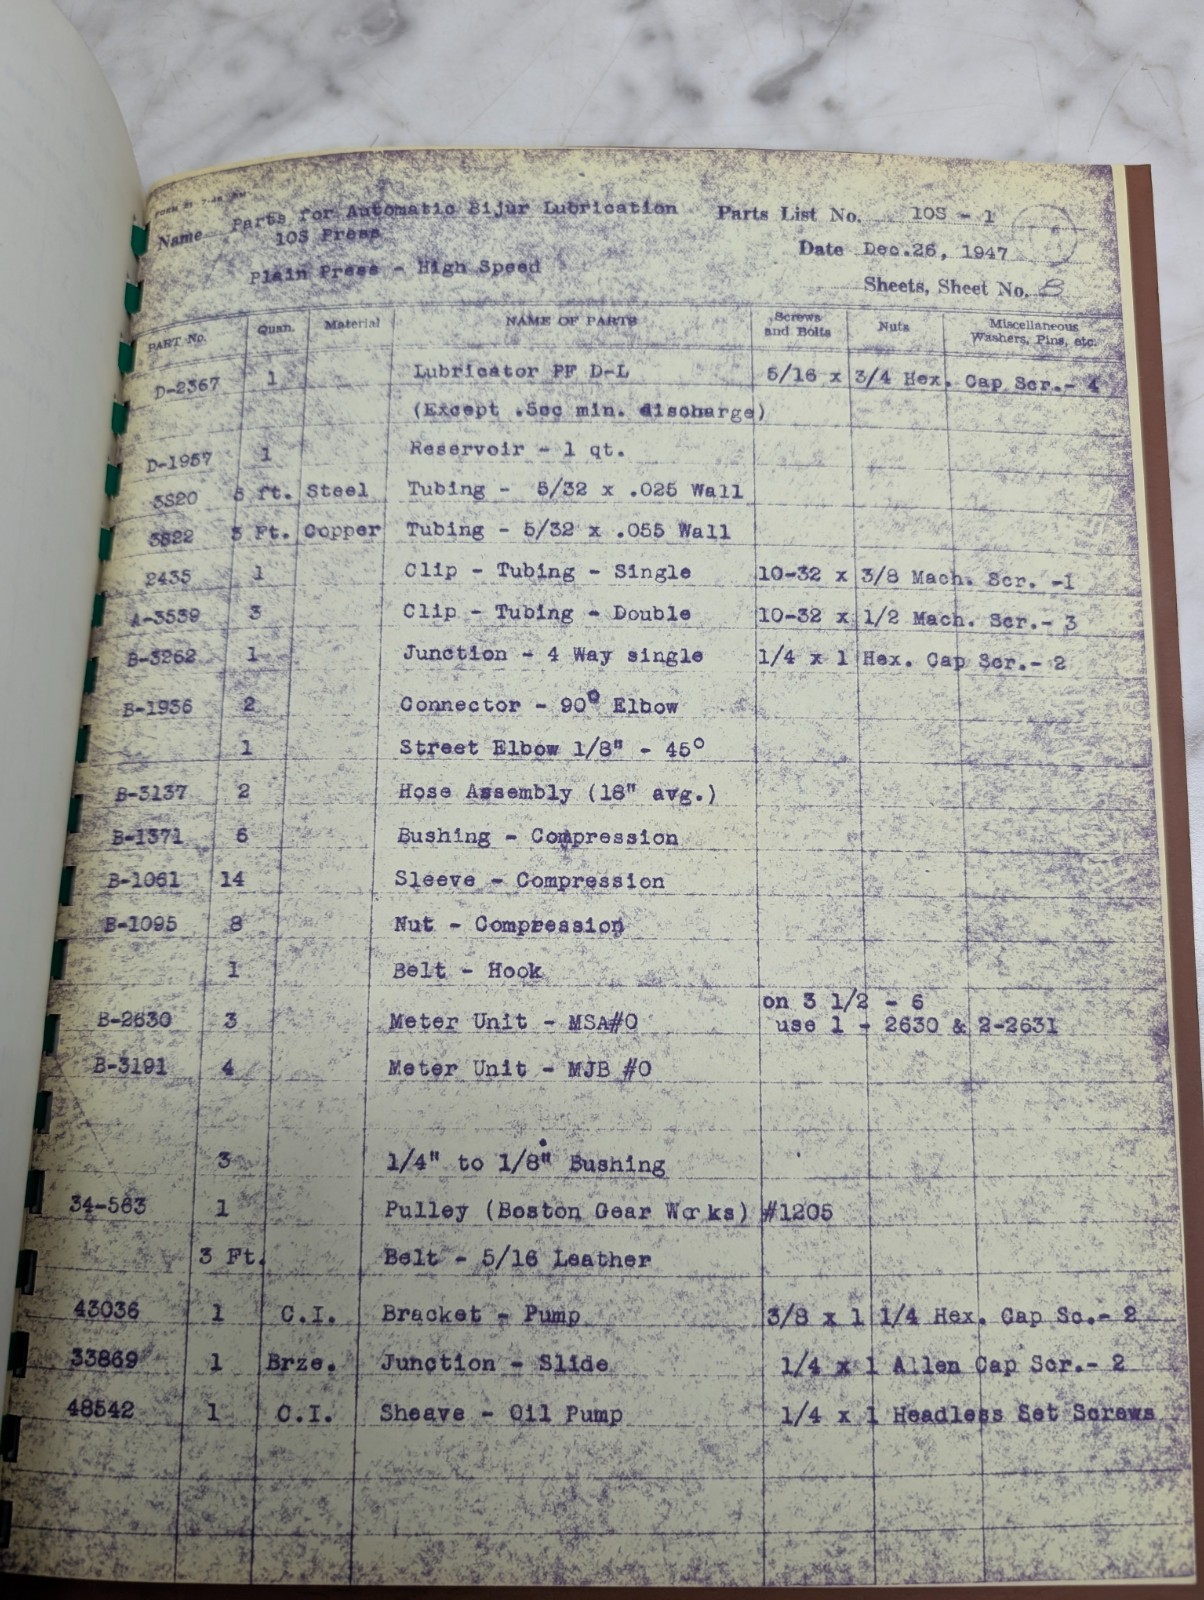 Name Parts for Automatic Bijur Lubrication
10S Press
Plain Press - High Speed
Parts List No. 10S - 1
Date Dec.26, 1947
Sheets, Sheet No. B
PART No. Quan. Material NAME OF PARTS Screws and Bolts Nuts Miscellaneous Washers, Pins, etc.
D-2367 1 Lubricator PF D-L 5/16 x 3/4 Hex. Cap Scr.- 4
(Except .5cc min. discharge)
D-1957 1 Reservoir - 1 qt.
3820 ft. Steel Tubing - 5/32 x .025 Wall
3822 3 Ft. Copper Tubing - 5/32 x .055 Wall
2435 1 Clip - Tubing - Single 10-32 x 3/8 Mach. Scr. -1
A-3539 3 Clip - Tubing - Double 10-32 x 1/2 Mach. Scr.- 3
B-3262 1 Junction - 4 Way single 1/4 x 1 Hex. Cap Scr.- 2
B-1936 2 Connector - 90° Elbow
1 Street Elbow 1/8" - 45°
B-3137 2 Hose Assembly (18" avg.)
B-1371 6 Bushing - Compression
B-1061 14 Sleeve - Compression
B-1095 8 Nut - Compression
1 Belt - Hook
B-2630 3 Meter Unit - MSA#0 on 3 1/2 - 6
use 1 - 2630 & 2-2631
B-3191 4 Meter Unit - MJB #0
3 1/4" to 1/8" Bushing
34-563 1 Pulley (Boston Gear Works) #1205
3 Ft. Belt - 5/16 Leather
43036 1 C.I. Bracket - Pump 3/8 x 1 1/4 Hex. Cap Sc.- 2
33869 1 Brze. Junction - Slide 1/4 x 1 Allen Cap Scr.- 2
48542 1 C.I. Sheave - Oil Pump 1/4 x 1 Headless Set Screws